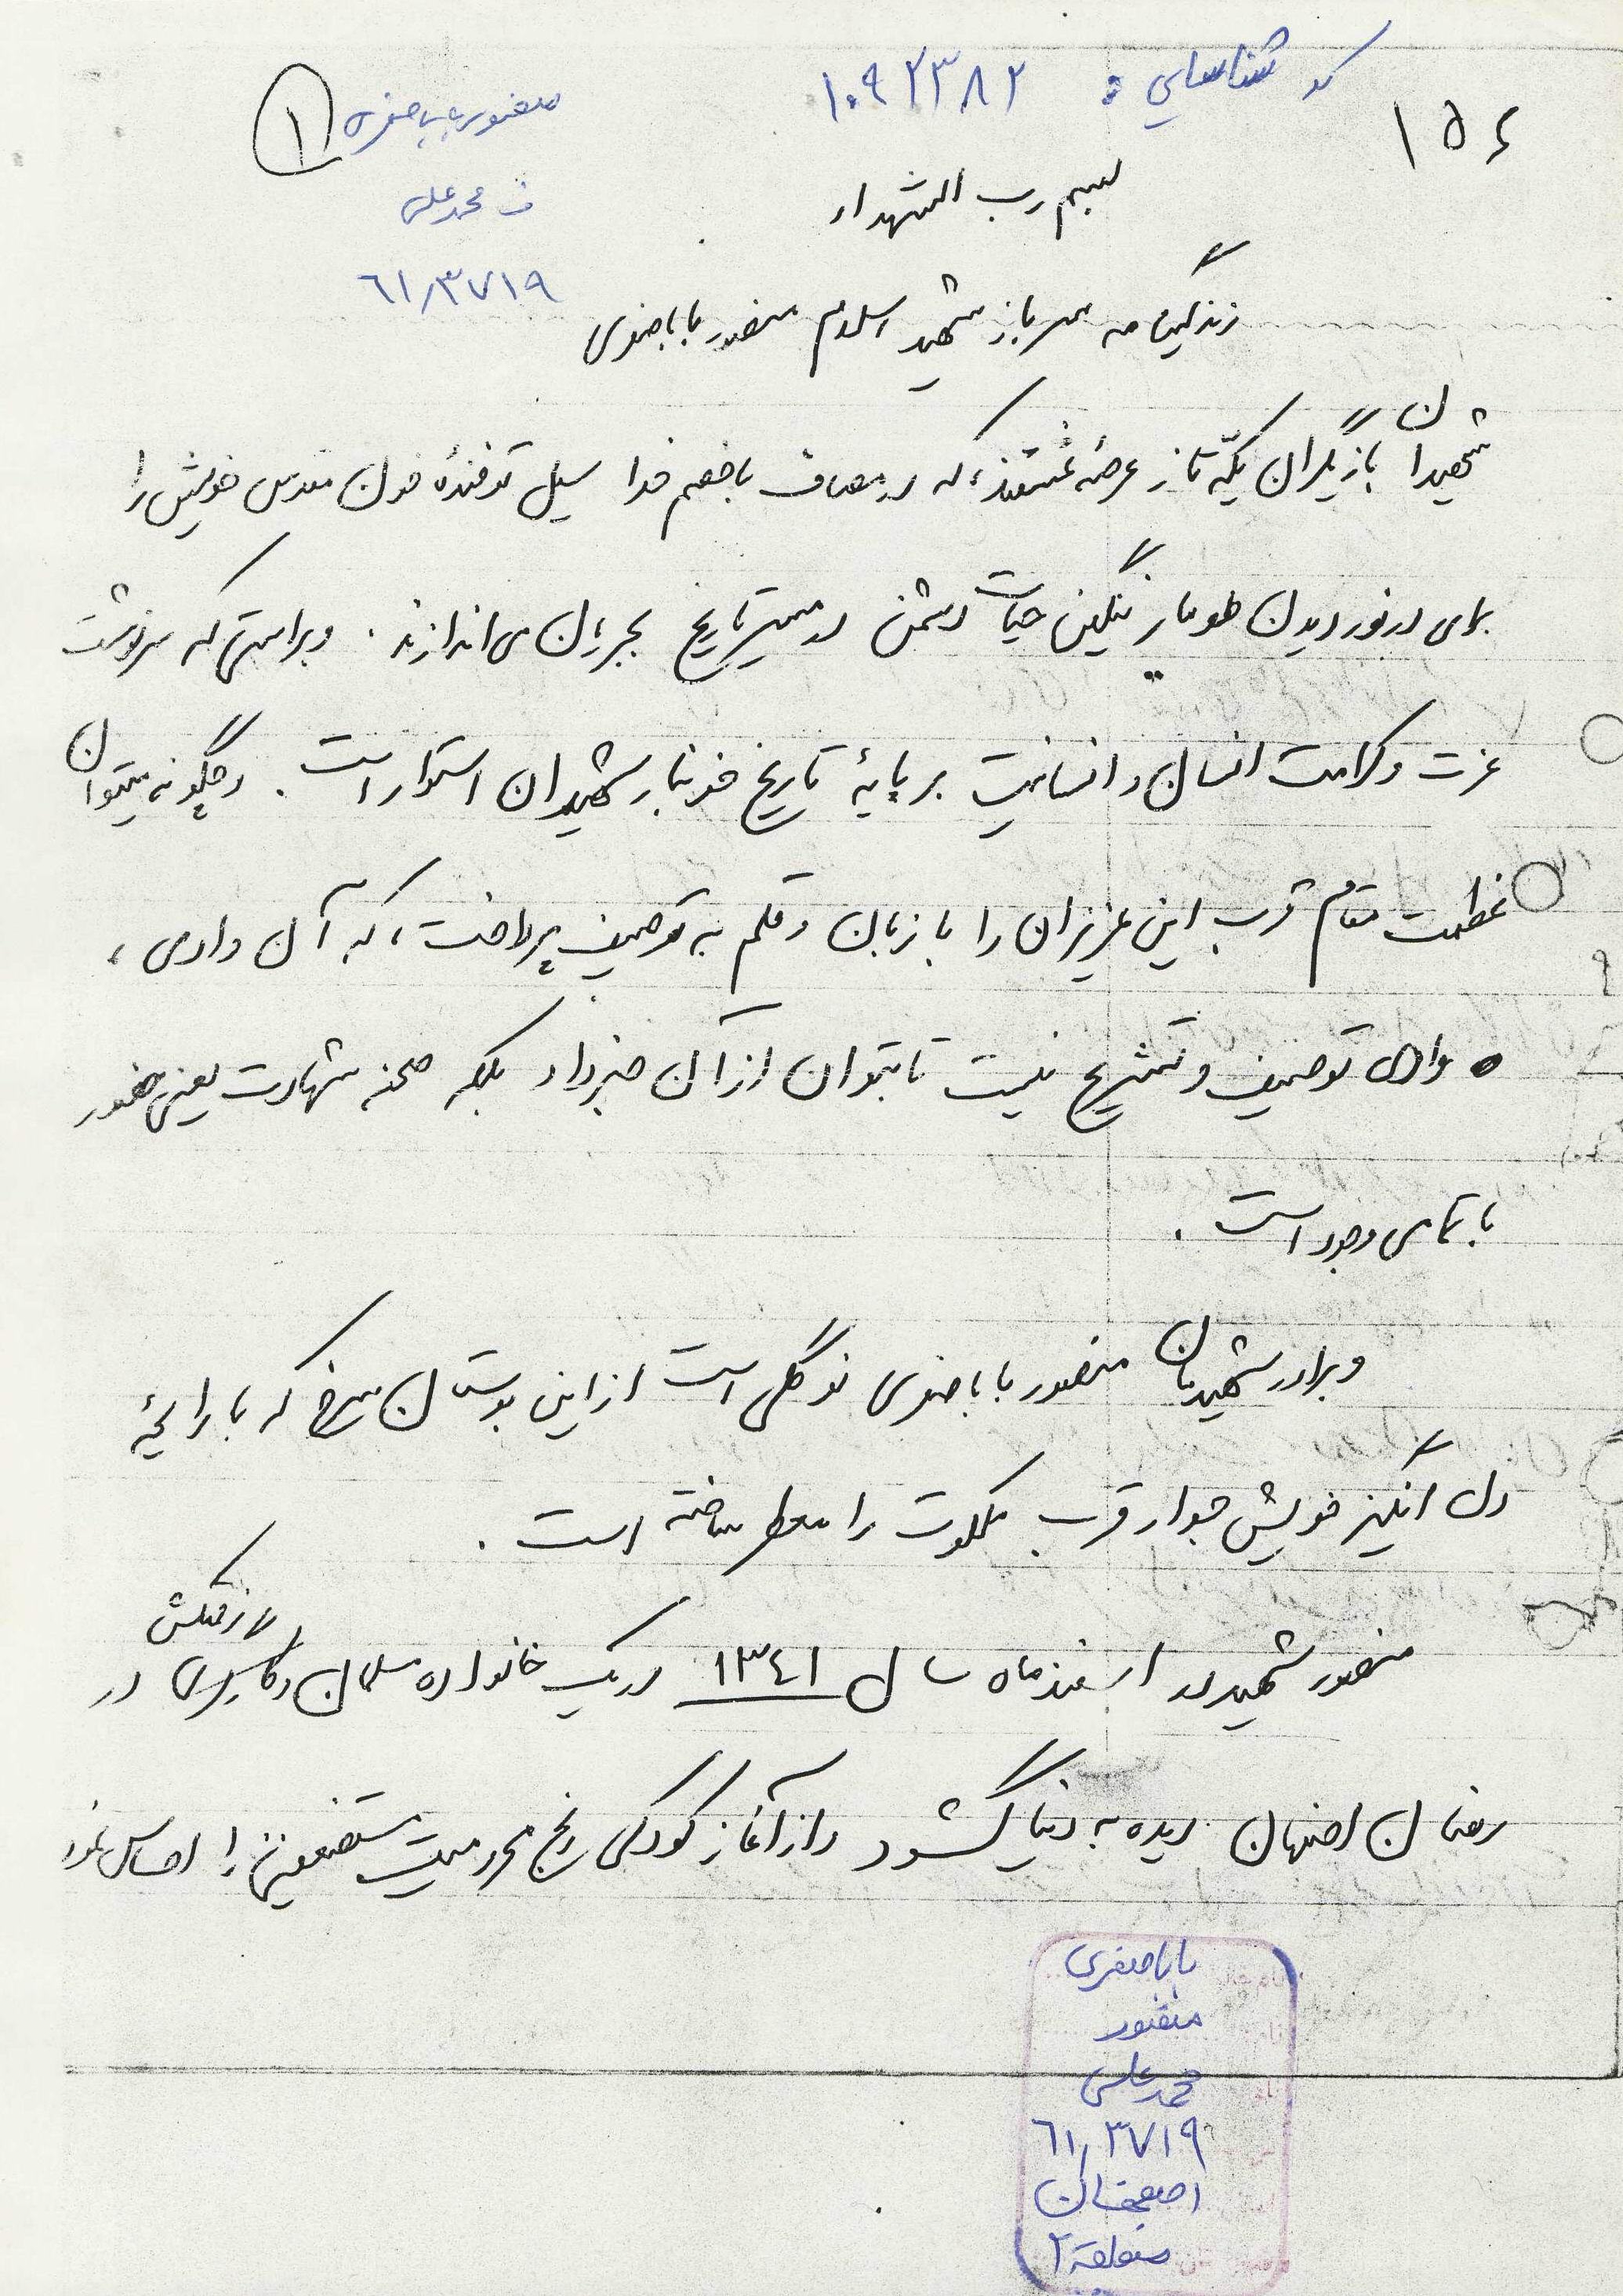 کد شناسایی : ۱۰۹۲۳۸۲
۱۵۶
منصور باباصفری ۱
ف محمدعلی
۶۱/۳۷۱۹
بسم رب الشهداء
زندگینامه سرباز شهید اسلام منصور باباصفری
شهیدان بازیگران یکّه تاز عرصهٔ عشقند، که در مصاف با خصم خدا سیل توفندهٔ خون مقدس خویش را
برای درنوردیدن طومار ننگین حیات دشمن در مسیر تاریخ بجریان می اندازند . و براستی که سرنوشت
عزت و کرامت انسان و انسانیت بر پایهٔ تاریخ خونبار شهیدان استوار است . و چگونه میتوان
عظمت مقام قرب این عزیزان را با زبان و قلم به توصیف پرداخت ، که آن وادی ،
وادی توصیف و تشریح نیست تا بتوان از آن خبر داد بلکه صحنه شهادت یعنی حضور
با تمامی وجود است .
و برادر شهیدمان منصور باباصفری نوگلی است از این بوستان سرخ که با رایحهٔ
دل انگیز خویش جوار قرب ملکوت را معطر ساخته است .
منصور شهید در اسفندماه سال ۱۳۴۱ در یک خانواده مسلمان و کارگری و زحمتکش در
رهنان اصفهان دیده به دنیا گشود و از آغاز کودکی رنج محرومیت مستضعفین را احساس نمود
باباصفری
منصور
محمدعلی
۶۱/۳۷۱۹
اصفهان
منطقه ۲